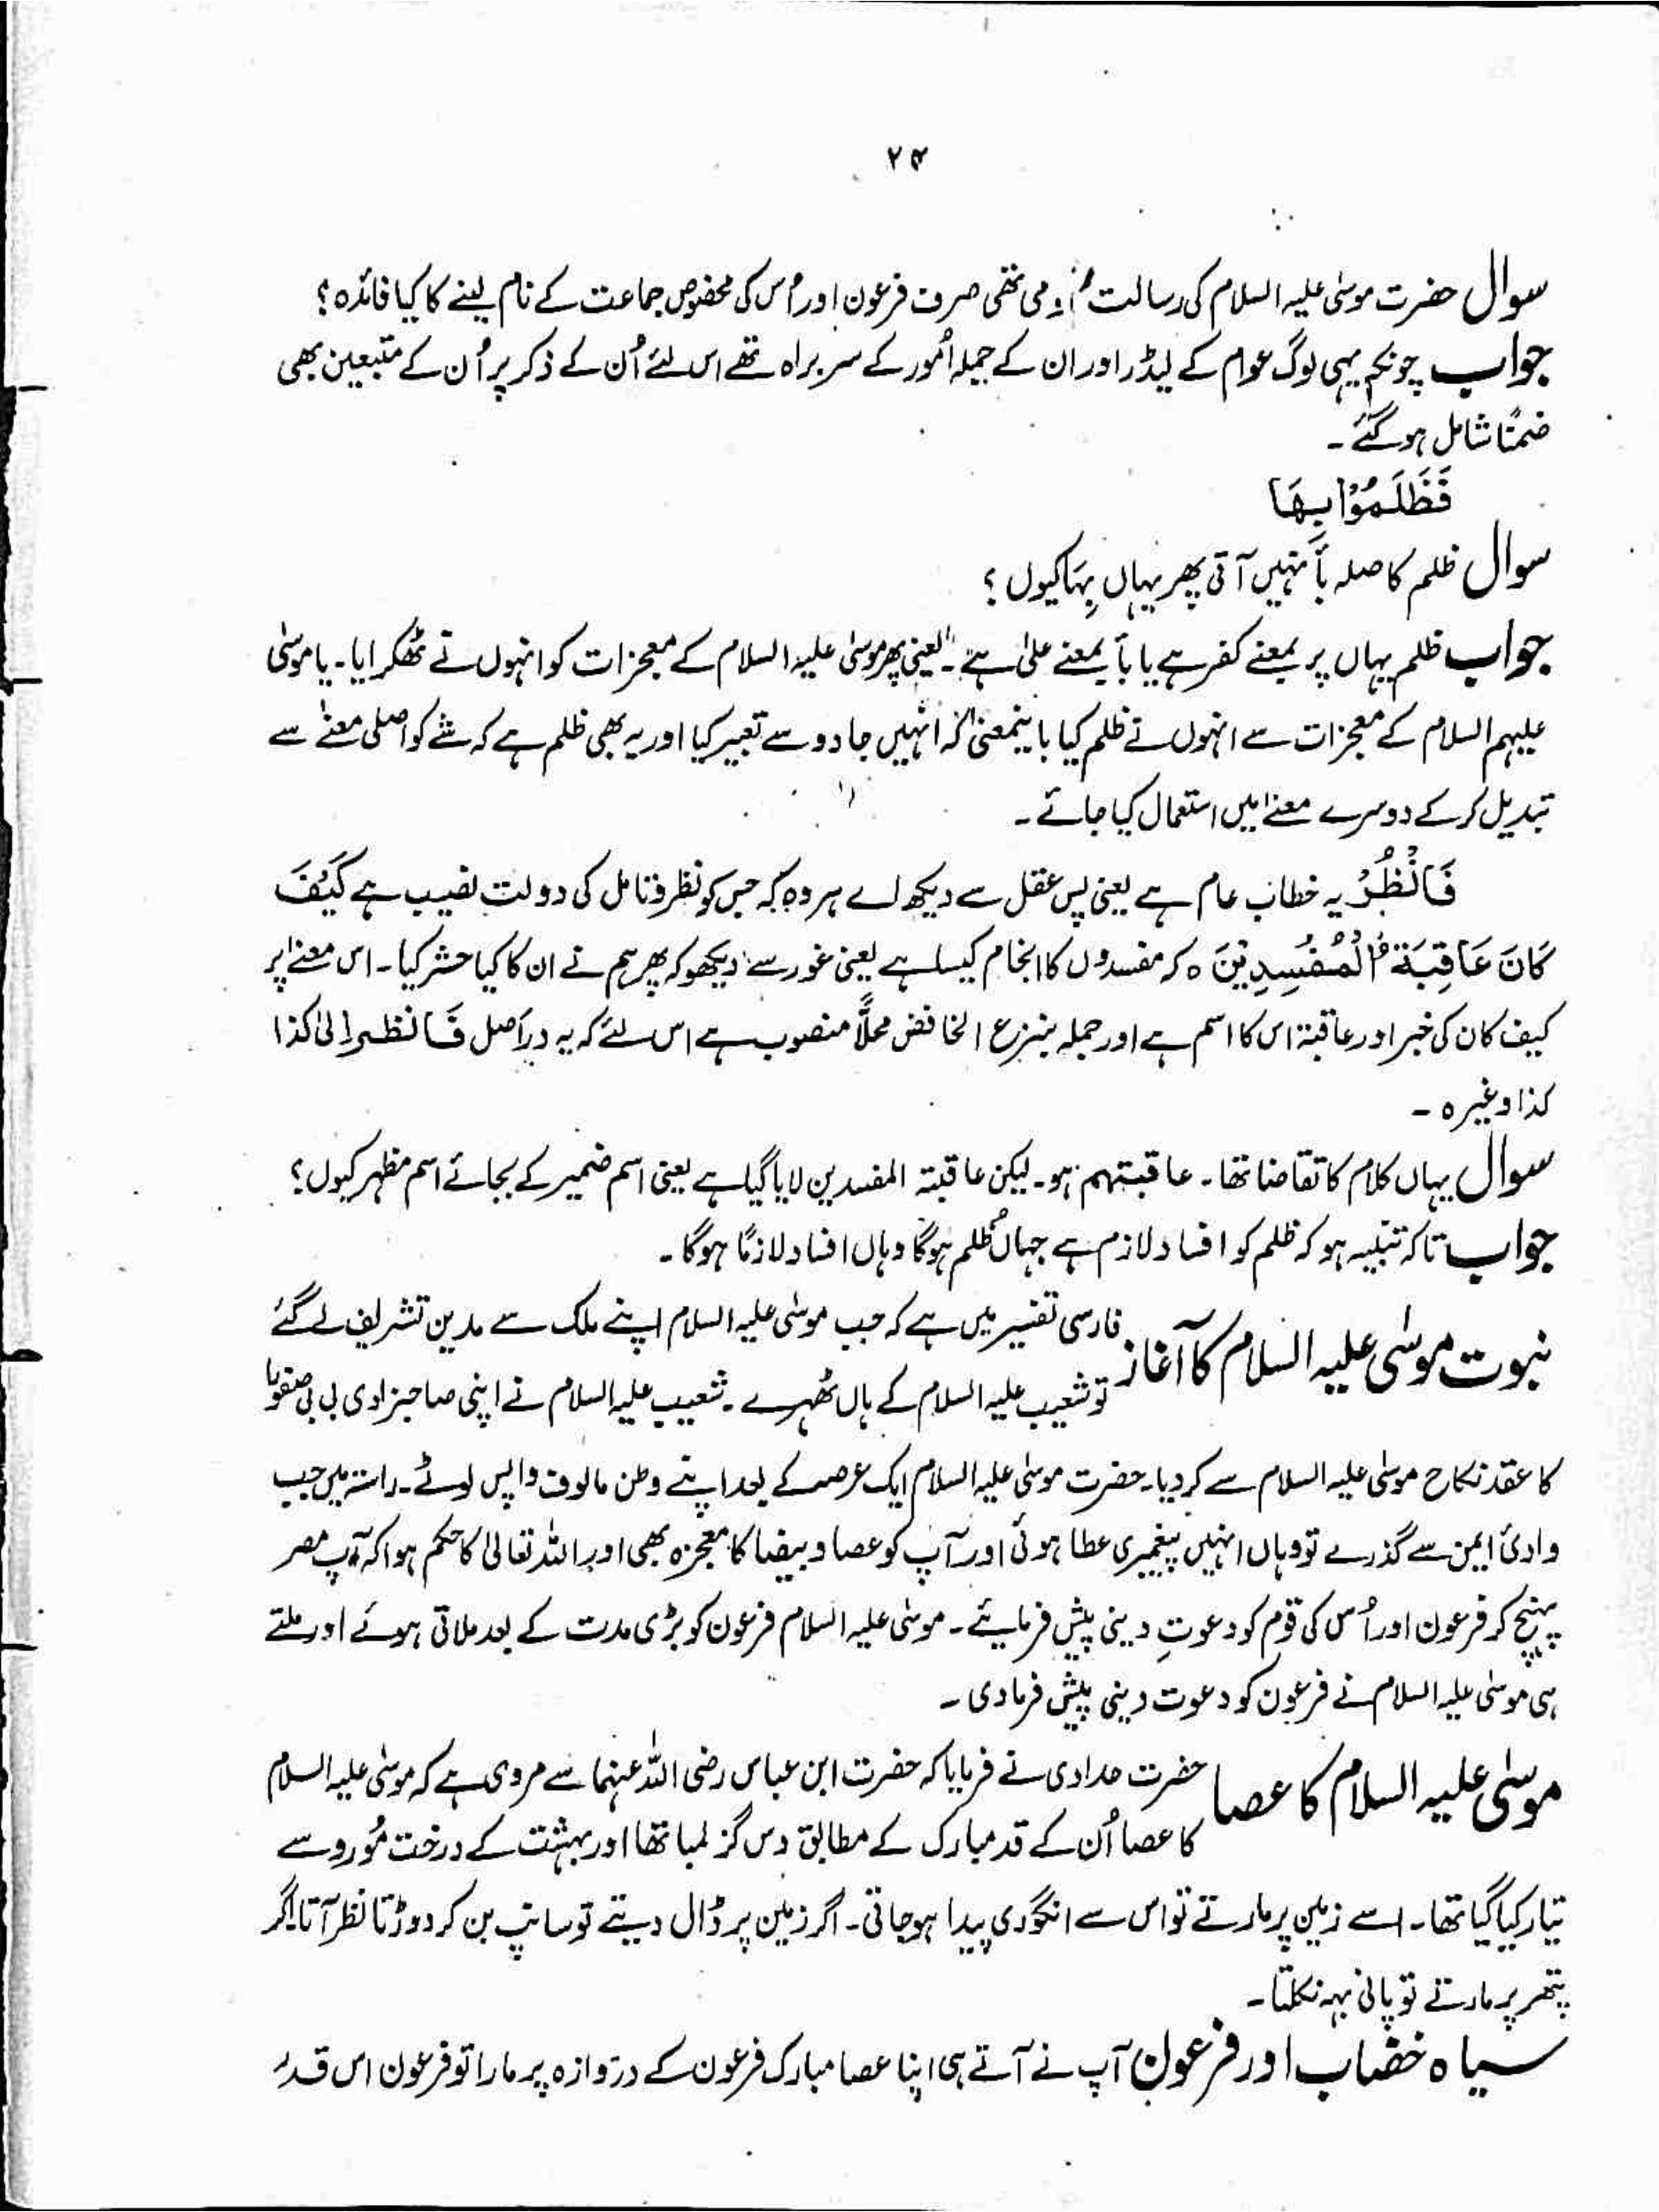 ۲۴
سوال حضرت موسیٰ علیہ السلام کی رسالت تھی صرف فرعون اور اُس کی مخصوص جماعت کے نام لینے کا کیا فائدہ؟
جواب چونکہ یہی لوگ عوام کے لیڈر اور ان کے جملہ اُمور کے سربراہ تھے اس لئے اُن کے ذکر پر اُن کے متبعین بھی
ضمنًا شامل ہو گئے۔
فَظَلَمُوْا بِهَا
سوال ظلم کا صلہ بأ نہیں آتی پھر یہاں بِہَا کیوں؟
جواب ظلم یہاں پر بمعنے کفر ہے یا بأ بمعنے علیٰ ہے۔ یعنی پھر موسیٰ علیہ السلام کے معجزات کو انہوں نے ٹھکرایا۔ یا موسیٰ
علیہم السلام کے معجزات سے انہوں نے ظلم کیا باینمعنیٰ کہ انہیں جادو سے تعبیر کیا اور یہ بھی ظلم ہے کہ شے کو اصلی معنے سے
تبدیل کر کے دوسرے معنے میں استعمال کیا جائے۔
فَانْظُرْ یہ خطاب عام ہے یعنی پس عقل سے دیکھ اے ہر وہ کہ جس کو نظر و تامل کی دولت نصیب ہے كَیْفَ
كَانَ عَاقِبَةُ الْمُفْسِدِیْنَ ہ کہ مفسدوں کا انجام کیسا ہے یعنی غور سے دیکھو کہ پھر ہم نے ان کا کیا حشر کیا۔ اس معنے پر
کیف کان کی خبر اور عاقبۃ اس کا اسم ہے اور جملہ بنزع الخافض محلًّا منصوب ہے اس لئے کہ یہ دراصل فَانظر اِلیٰ کذا
کذا وغیرہ۔
سوال یہاں کلام کا تقاضا تھا۔ عاقبتہم ہو۔ لیکن عاقبۃ المفسدین لایا گیا ہے یعنی اسم ضمیر کے بجائے اسم مظہر کیوں؟
جواب تا کہ تنبیہ ہو کہ ظلم کو افساد لازم ہے جہاں ظلم ہوگا وہاں افساد لازمًا ہوگا۔
نبوت موسیٰ علیہ السلام کا آغاز فارسی تفسیر میں ہے کہ جب موسیٰ علیہ السلام اپنے ملک سے مدین تشریف لے گئے
تو شعیب علیہ السلام کے ہاں ٹھہرے۔ شعیب علیہ السلام نے اپنی صاحبزادی بی بی صفورا
کا عقد نکاح موسیٰ علیہ السلام سے کر دیا۔ حضرت موسیٰ علیہ السلام ایک عرصہ کے بعد اپنے وطن مالوف واپس لوٹے۔ راستہ میں جب
وادیٔ ایمن سے گذرے تو وہاں انہیں پیغمبری عطا ہوئی اور آپ کو عصا و بیضا کا معجزہ بھی اور اللہ تعالیٰ کا حکم ہوا کہ آپ مصر
پہنچ کر فرعون اور اُس کی قوم کو دعوتِ دینی پیش فرمائیے۔ موسیٰ علیہ السلام فرعون کو بڑی مدت کے بعد ملاقی ہوئے اور ملتے
ہی موسیٰ علیہ السلام نے فرعون کو دعوت دینی پیش فرما دی۔
موسیٰ علیہ السلام کا عصا حضرت حدادی نے فرمایا کہ حضرت ابن عباس رضی اللہ عنہما سے مروی ہے کہ موسیٰ علیہ السلام
کا عصا اُن کے قد مبارک کے مطابق دس گز لمبا تھا اور بہشت کے درخت مُورو سے
تیار کیا گیا تھا۔ اسے زمین پر مارتے تو اس سے انگوری پیدا ہو جاتی۔ اگر زمین پر ڈال دیتے تو سانپ بن کر دوڑتا نظر آتا اگر
پتھر پر مارتے تو پانی بہہ نکلتا۔
سیاہ خضاب اور فرعون آپ نے آتے ہی اپنا عصا مبارک فرعون کے دروازہ پر مارا تو فرعون اس قدر